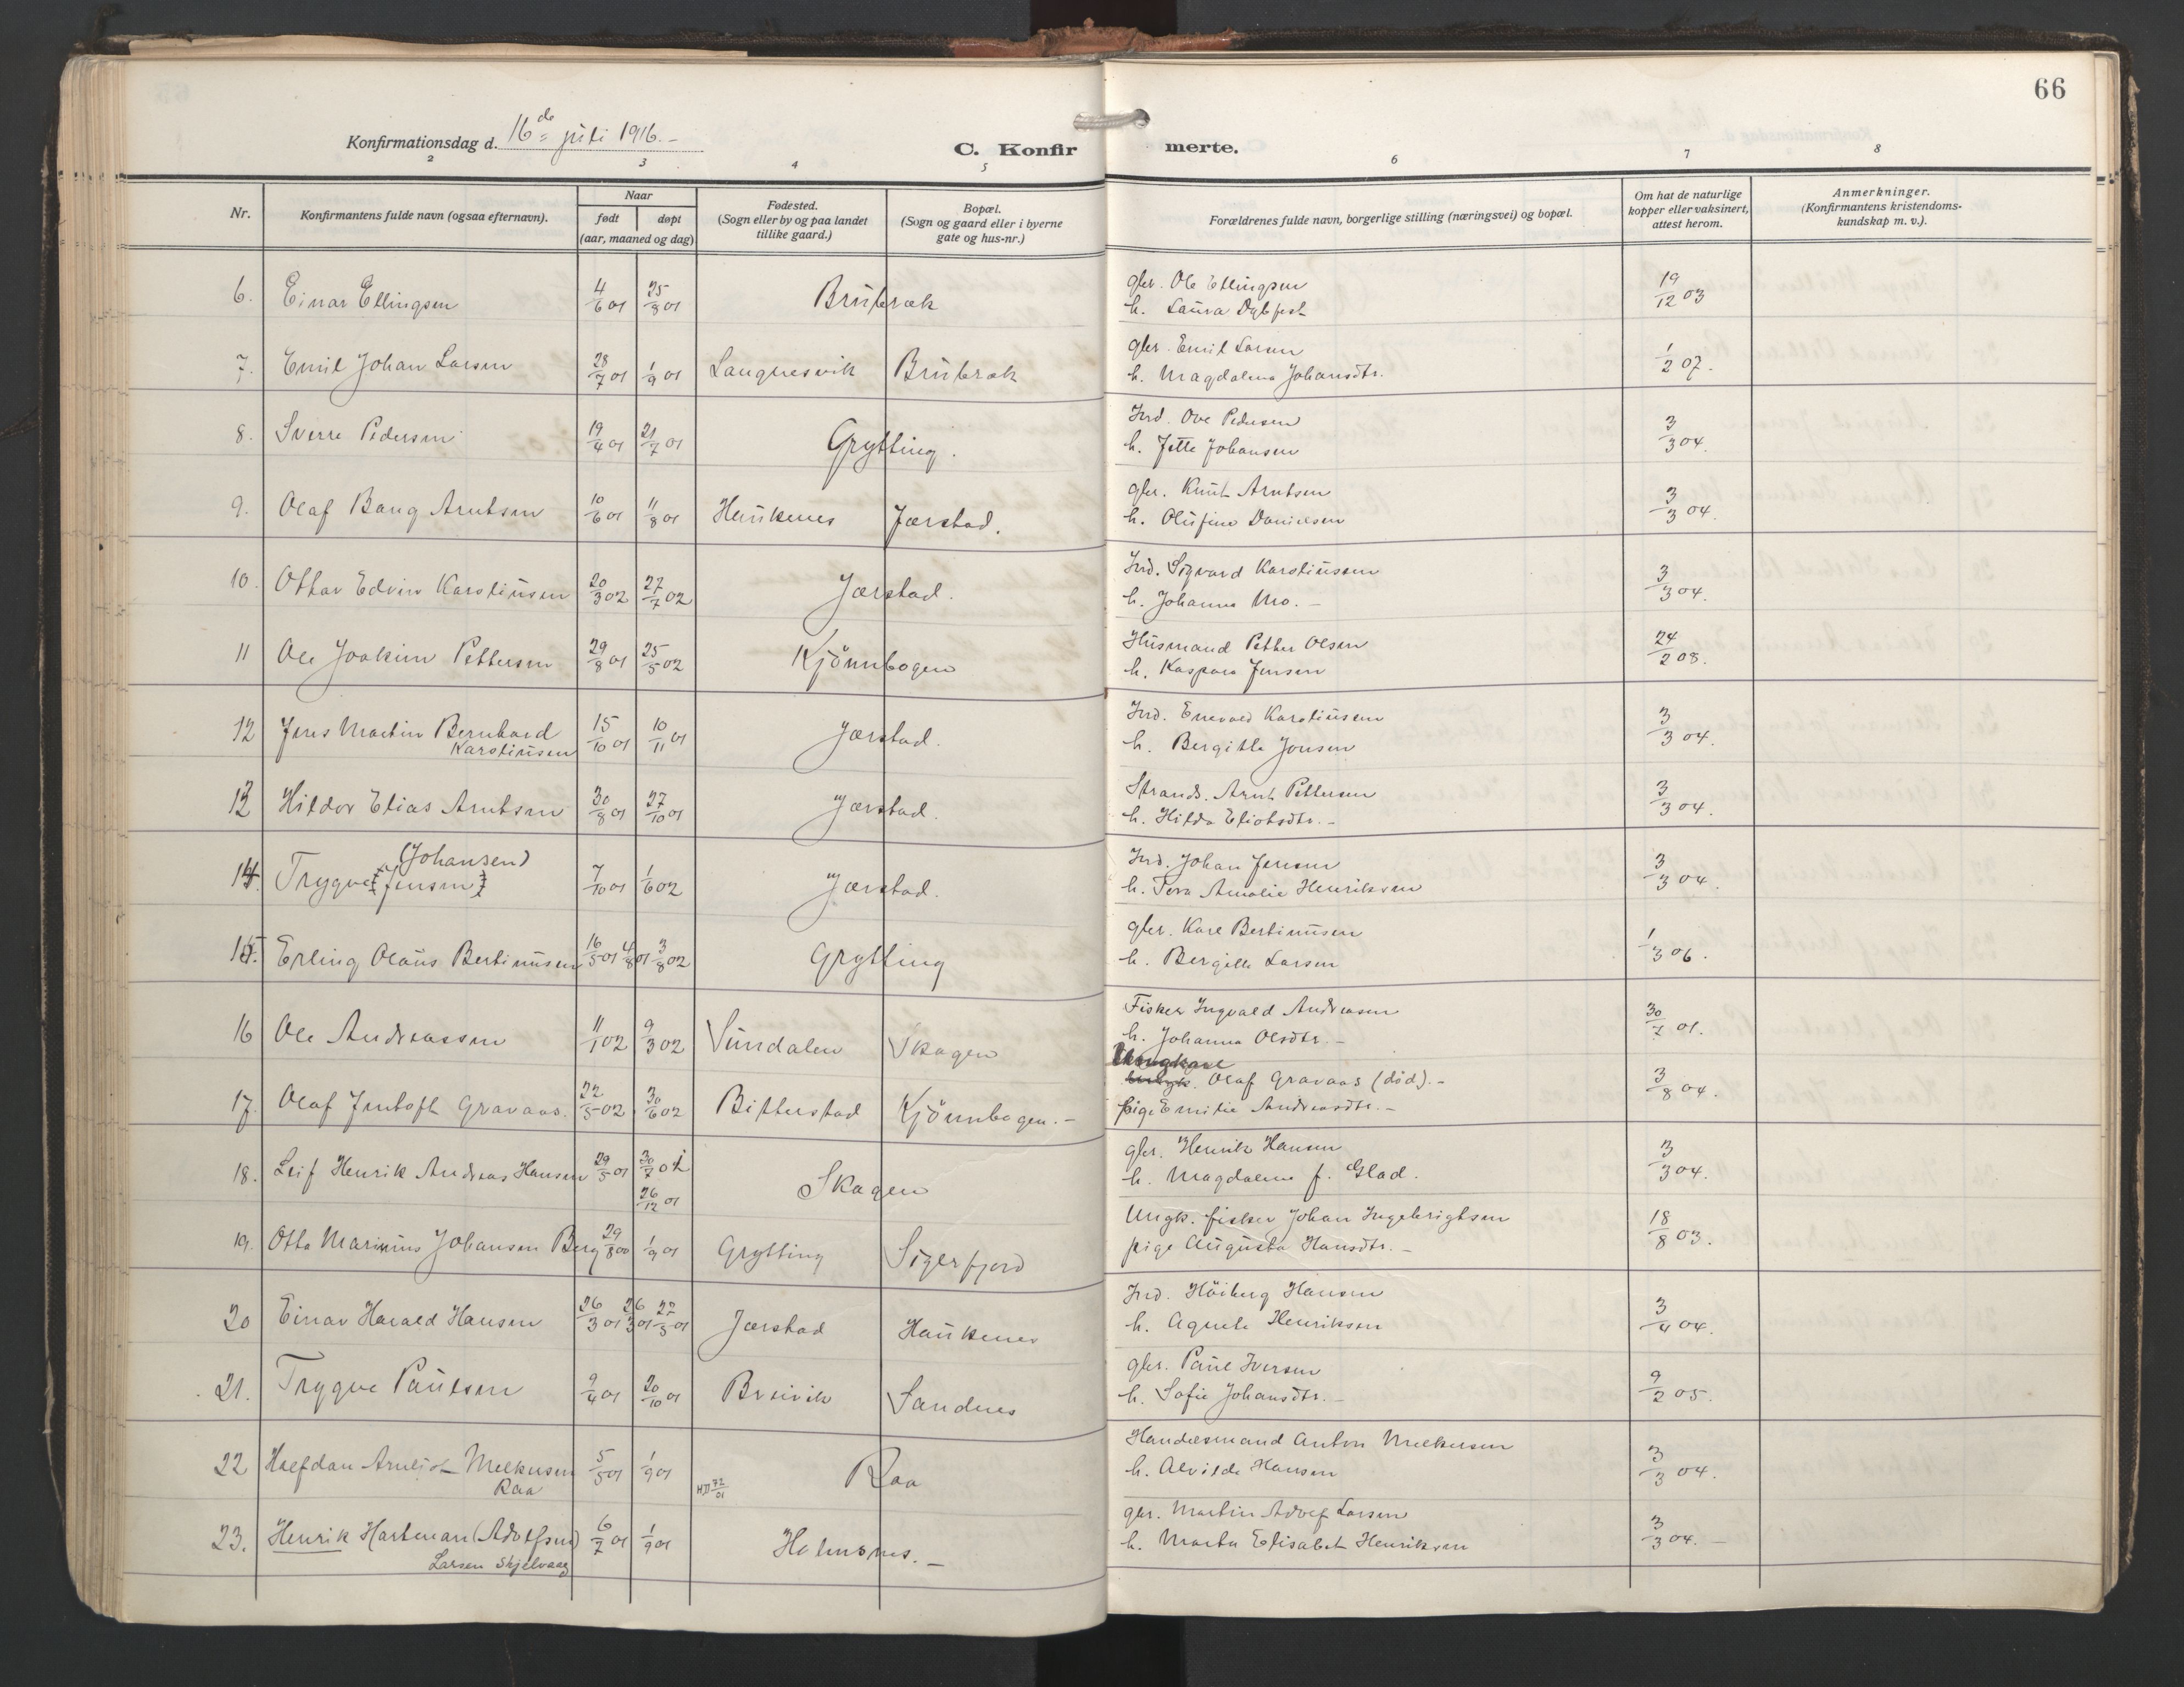 66
Konfirmationsdag d. 16de juli 1916.-
C. Konfir merte.
2 3 4 5 6 7 8
Nr.
Konfirmantens fulde navn (ogsaa efternavn).
Naar
født døpt
(aar, maaned og dag)
Fødested.
(Sogn eller by og paa landet
tillike gaard.)
Bopæl.
(Sogn og gaard eller i byerne
gate og hus-nr.)
Forældrenes fulde navn, borgerlige stilling (næringsvei) og bopæl.
Om hat de naturlige
kopper eller vaksinert,
attest herom.
Anmerkninger.
(Konfirmantens kristendoms-
kundskap m. v.).
6. Einar Ellingsen 4/6 01 25/8 01 gbr. Ole Ellingsen 19/12 03
h. Laura Dybfest
7. Emil Johan Larsen 28/7 01 1/9 01 gbr. Emil Larsen 1/2 07.
h. Magdalena Johansdtr.
8. Sverre Pedersen 19/4 01 21/7 01 Grytting. Ind. Ove Pedersen 3/3 04.
h. Jette Johansen
9. Olaf Bang Arntsen 10/6 01 11/8 01 Haukenes Jørstad. gbr. Knut Arntsen 3/3 04.
h. Olufine Danielsen
10. Ottar Edvin Karolinsen 20/3 02 27/7 02 Jørstad. Ind. Sigvard Karolinsen 3/3 04.
h. Johanna Mo. -
11 Ole Joakim Pettersen 29/8 01 25/5 02 Kjønnbogen Husmand Petter Olsen 24/2 08.
h. Kaspara Jensen
12 Jens Martin Bernhard 15/10 01 10/11 01 Jørstad. Ind. Enevald Karolinsen 3/3 04.
Karolinsen h. Bergitte Jonsen
13 Hildor Elias Arntsen 30/8 01 27/10 01 Jørstad. Strands. Arnt Pettersen 3/3 04.
h. Hilda Eliasdtr. -
(Johansen)
14. Trygve Jensen 7/10 01 1/6 02 Jørstad. Ind. Johan Jensen 3/3 04.
h. Amalie Henriksen
15. Erling Olaus Bertinusen 16/5 01 4/8 01 3/8 02 Grytting gbr. Karl Bertinusen 1/3 06.
h. Bergitte Larsen
16 Ole Andreassen 11/1 02 9/3 02 Sundalen Skagen Fisker Ingvald Andreasen 30/7 01.
h. Johanna Olsdtr. -
Ungkarl
17. Olaf Jentoft Gravaas. 22/5 02 30/6 02 Bitterstad Kjønnbogen. - Olaf Gravaas (død). - 3/8 04.
pige Emilie Andreasdtr. -
18. Leif Henrik Andreas Hansen 29/5 01 30/7 01 Skagen gbr. Henrik Hansen 3/3 04.
26/12 01 h. Magdalena f. Glad.
19. Otto Marinius Johansen Berg 29/8 00 1/9 01 Grytting Sigerfjord Ungk. fisker Johan Ingebrigtsen 18/8 03.
pige Augusta Hansdtr. -
20 Einar Harald Hansen 26/3 01 26/3 01 27/5 01 Jørstad Haukenes Ind. Høiberg Hansen 3/4 04.
h. Agnete Henriksen
21. Trygve Paulsen 9/4 01 20/10 01 Breivik Sandnes gbr. Paul Iversen 9/2 05.
h. Sofie Johansdtr. -
22 Halfdan Arnljot Melkersen 5/5 01 1/9 01 Raa Handelsmand Anton Melkersen 3/3 04.
Raa h. Alvilde Hansen
23. Henrik Hartman (Adolfsen) 6/7 01 1/9 01 Holmsnes. - gbr. Martin Adolf Larsen 3/3 04. -
Larsen Skjelvaag h. Marta Elisabet Henriksen